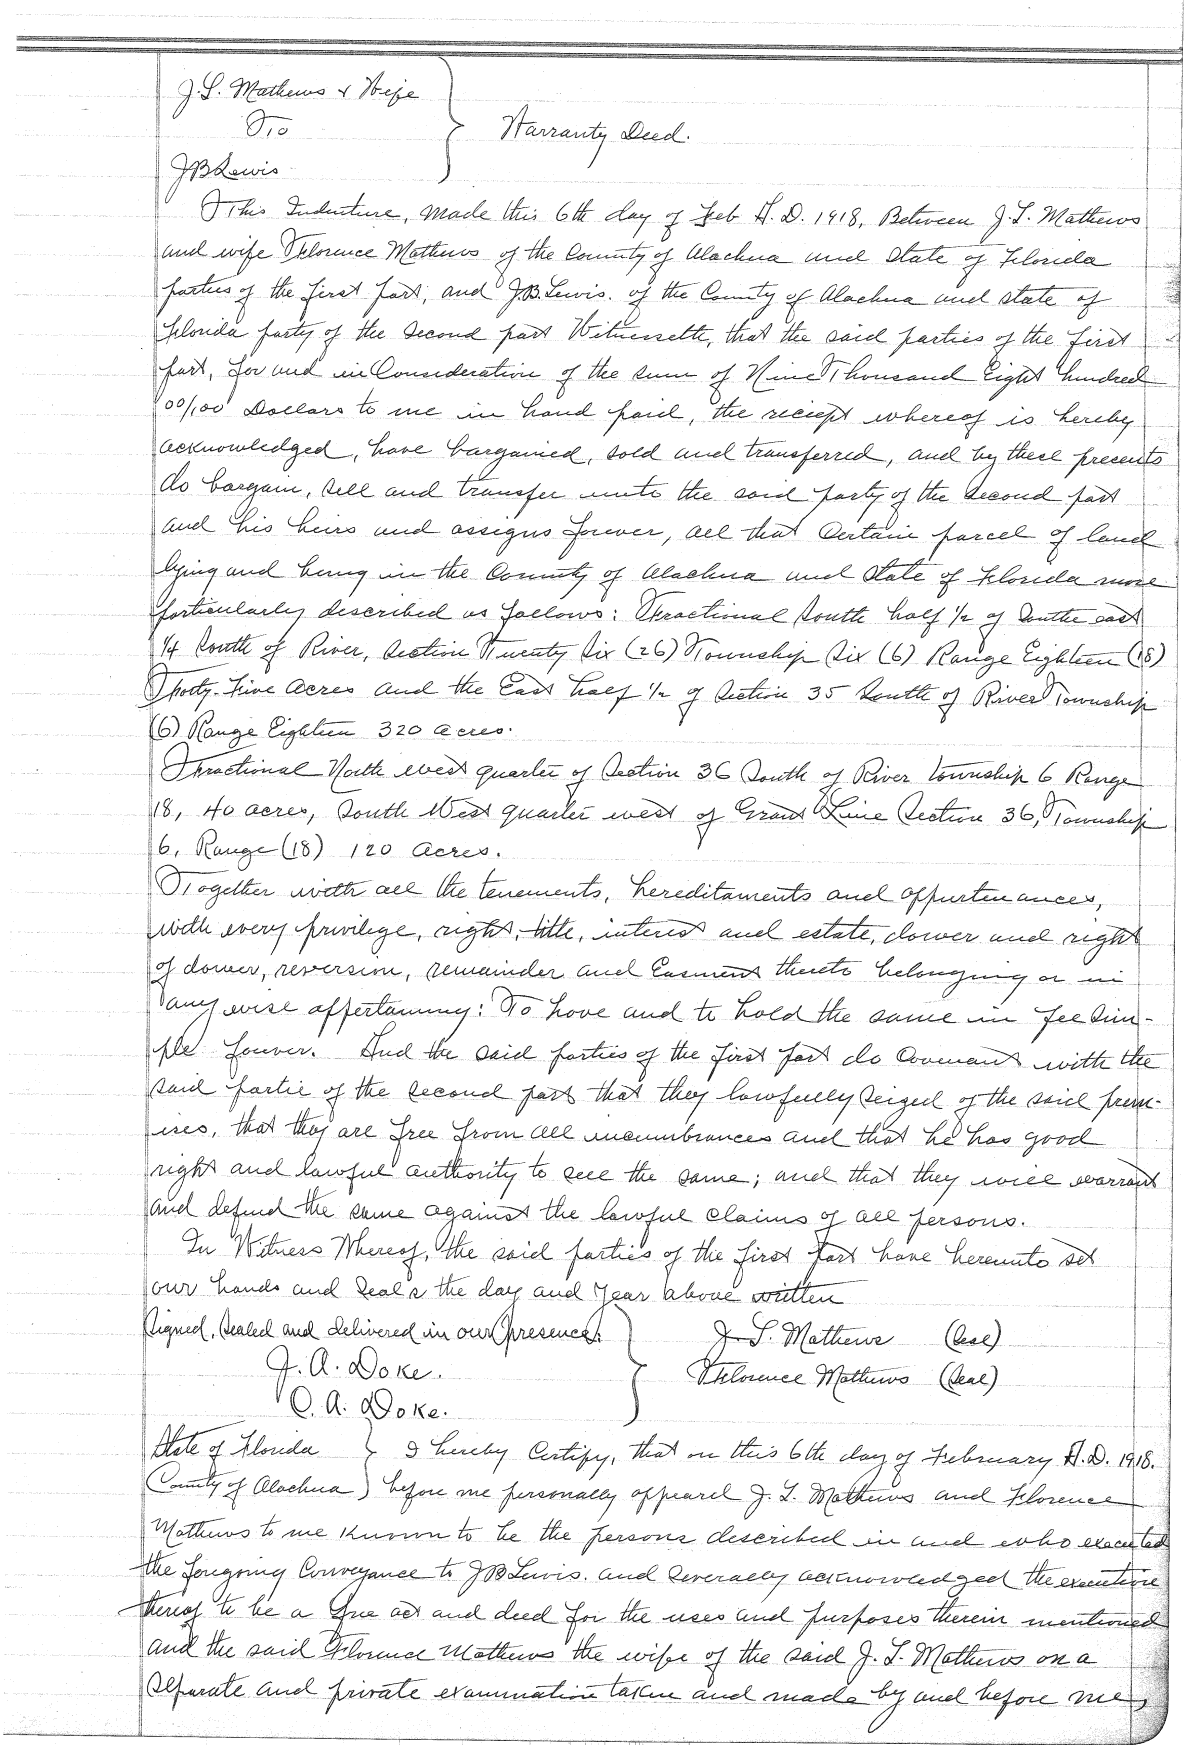 J. L. Mathews & Wife
To
Warranty Deed.
J B Lewis
This Indenture, made this 6th day of Feb A. D. 1918, Between J. L. Mathews
and wife Florence Mathews of the County of Alachua and State of Florida
parties of the first part, and J. B. Lewis. of the County of Alachua and state of
Florida party of the second part Witnesseth, that the said parties of the first
part, for and in Consideration of the sum of Nine Thousand Eight hundred
00/100 Dollars to me in hand paid, the reciept whereof is hereby
acknowledged, have bargained, sold and transferred, and by these presents
do bargain, sell and transfer unto the said party of the second part
and his heirs and assigns forever, all that Certain parcel of land
lying and being in the County of Alachua and State of Florida more
particularly described as follows: Fractional South half 1/2 of South east
1/4 South of River, Section Twenty Six (26) Township Six (6) Range Eighteen (18)
Thorty-Five Acres and the East half 1/2 of Section 35 South of River Township
(6) Range Eighteen 320 acres.
Fractional North west quarter of Section 36 South of River township 6 Range
18, 40 acres, South West quarter west of Grant Line Section 36, Township
6, Range (18) 120 Acres.
Together with all the tenements, hereditaments and appurtenances,
with every privilege, right, title, interest and estate, dower and right
of dower, reversion, remainder and Easment thereto belonging or in
any wise appertaining: To have and to hold the same in fee sim-
ple forever. And the said parties of the first part do Covenant with the
said partie of the second part that they lawfully seized of the said prem-
ises, that they are free from all incumbrances and that he has good
right and lawful authority to sell the same; and that they will warrant
and defend the same against the lawful claims of all persons.
In Witness Whereof, the said parties of the first part have hereunto set
our hands and Seals the day and Year above written
Signed, Sealed and delivered in our presence:
J. L. Mathews (Seal)
J. A. Doke.
Florence Mathews (Seal)
C. A. Doke.
State of Florida } I hereby Certify, that on this 6th day of February A. D. 1918.
County of Alachua ) before me personally appeared J. L. Mathews and Florence
Mathews to me known to be the persons described in and who executed
the foregoing Conveyance to J B Lewis. and severally acknowledged the execution
thereof to be a free act and deed for the uses and purposes therein mentioned
and the said Florence Mathews the wife of the said J. L. Mathews on a
separate and private examination taken and made by and before me,